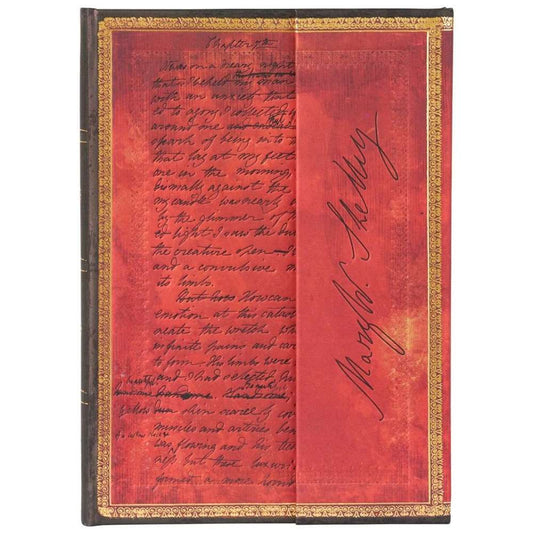 Chapter 7th
It was on a dreary night
that I beheld my man
with an anxiety that
ed to agony I collected
around me
spark of being into
that lay at my feet
are in the morning,
dismally against the
my candle was nearly
by the glimmer of
ed light I saw the du
the creature open
and a convulsive m
its limbs.
But how How can
emotion at this catas
create the wretch
infinite pains and car
to form. His limbs were
and I had selected
handsome
yellow skin scarcely co
muscles and arteries be
was flowing and his te
ness but these luxuri
formed a more horri
Mary W. Shelley